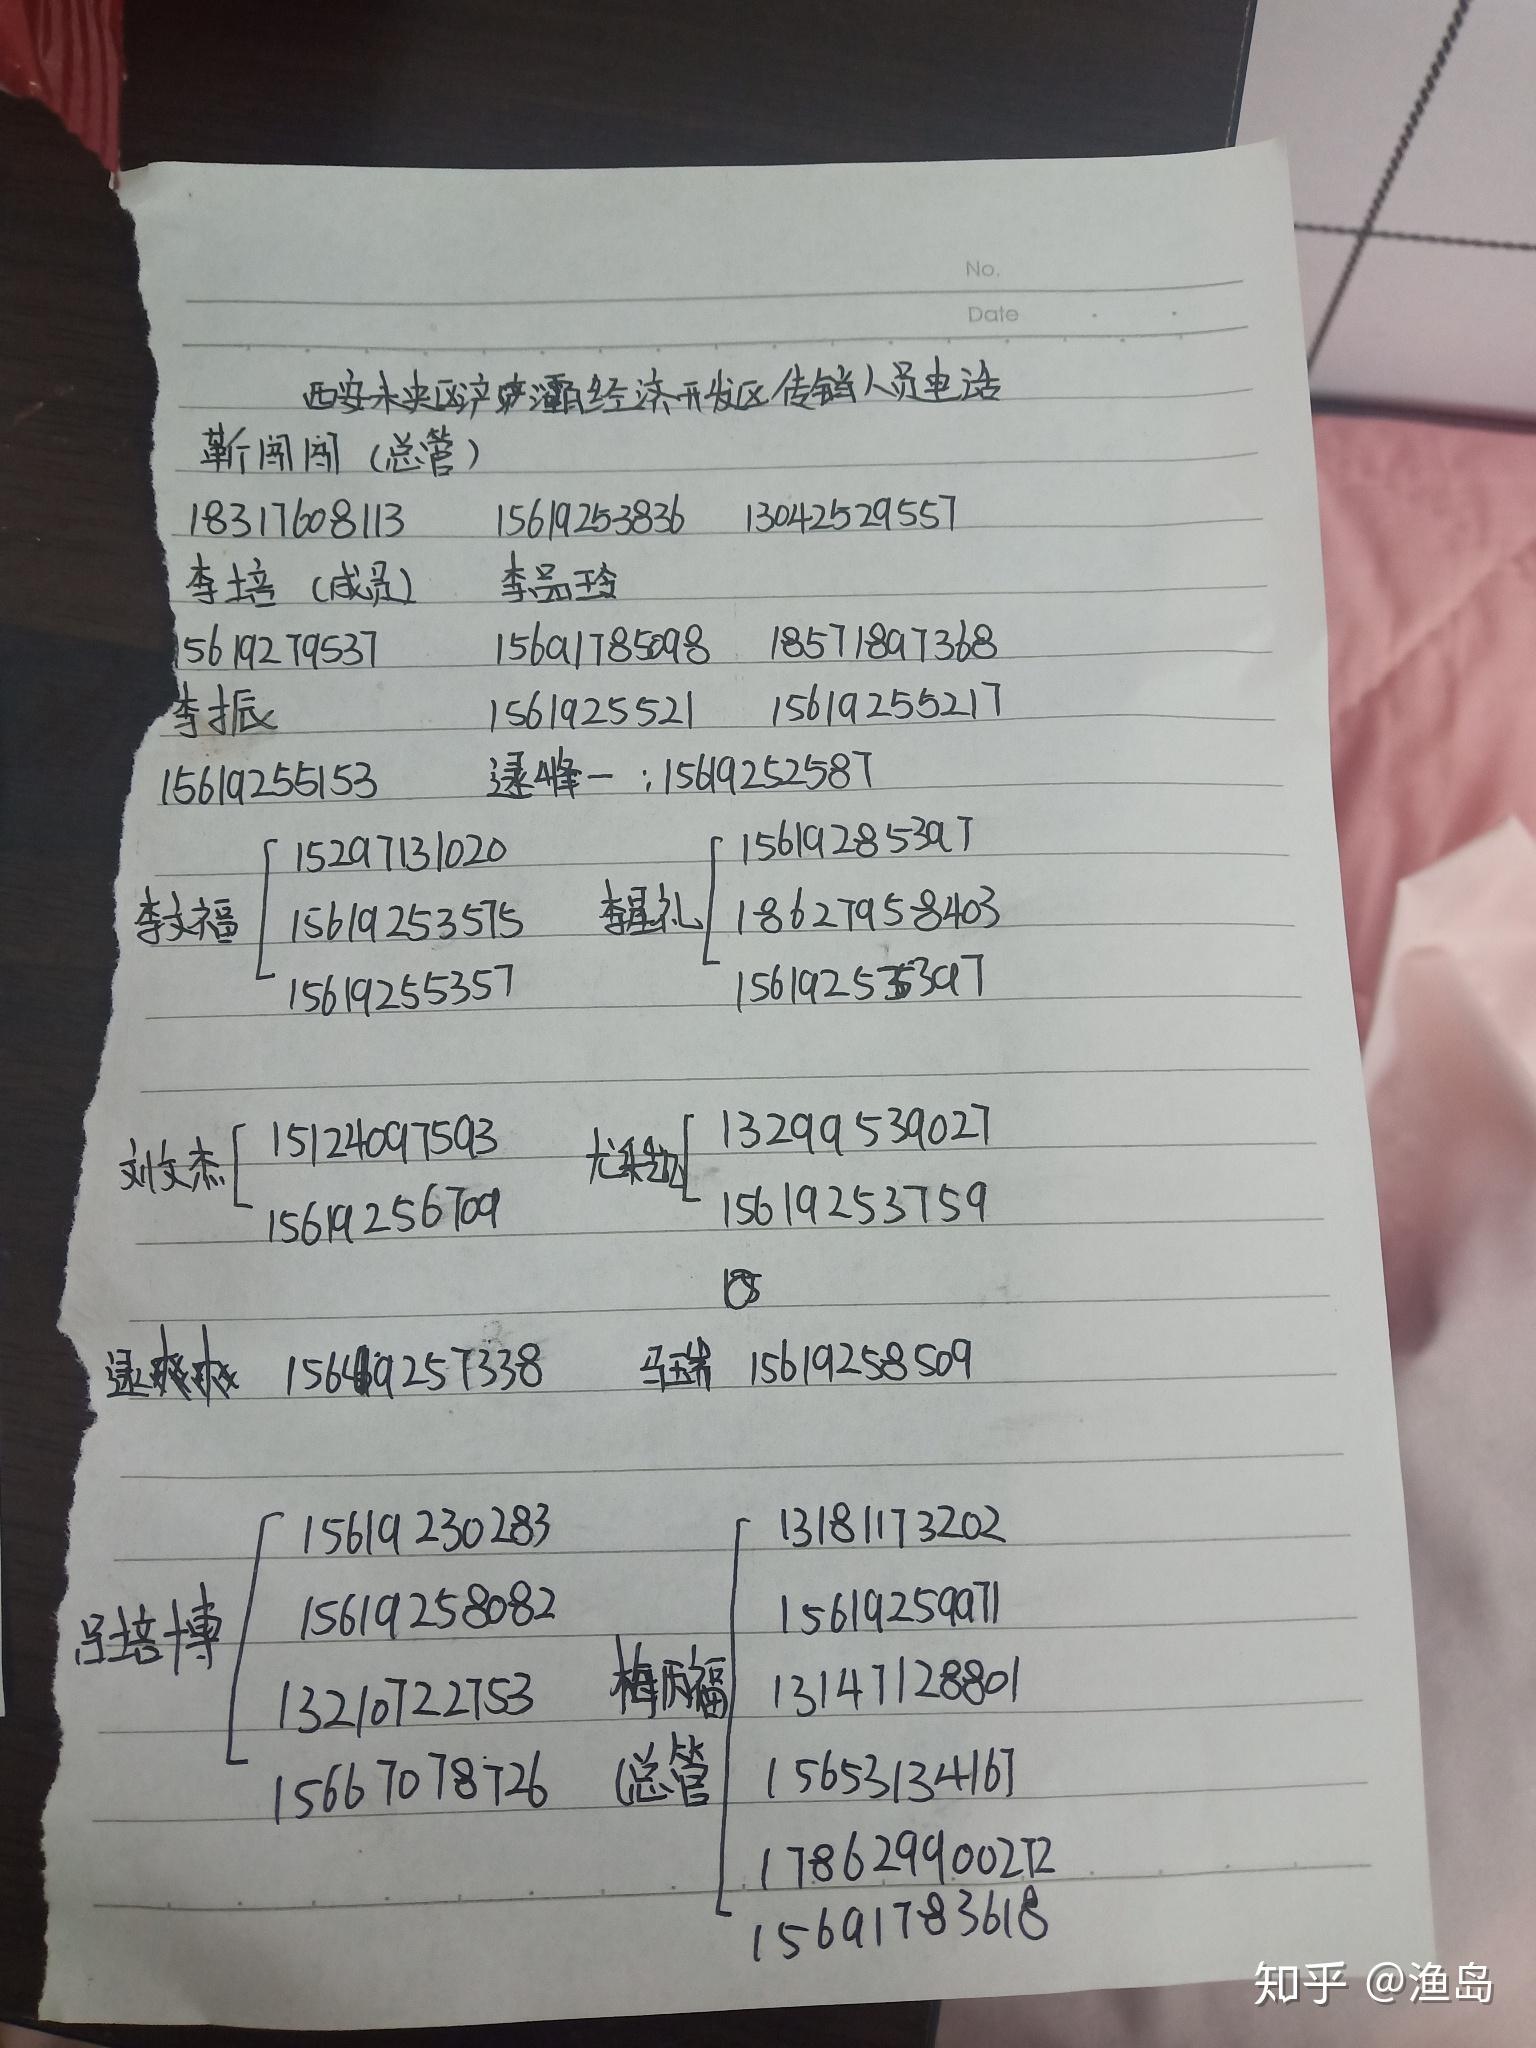 No.
Date
西安未央区浐灞经济开发区传销人员电话
靳闯闯（总管）
18317608113 15619253836 13042529557
李培（成员） 李品玲
15619279537 15691785098 18571897368
李振 1561925521 15619255217
15619255153 逯峰一：15619252587
李文福 15297131020 李星礼 15619285397
15619253575 18627958403
15619255357
刘文杰 15124097593 13299539027
15619256709 15619253759
逯爽爽 15619257338 马瑞 15619258509
吕培博 15619230283 梅丙福（总管 13181173202
15619258082 15619259971
13210722753 13147128801
15667078726 15653134167
15691783618
知乎 @渔岛